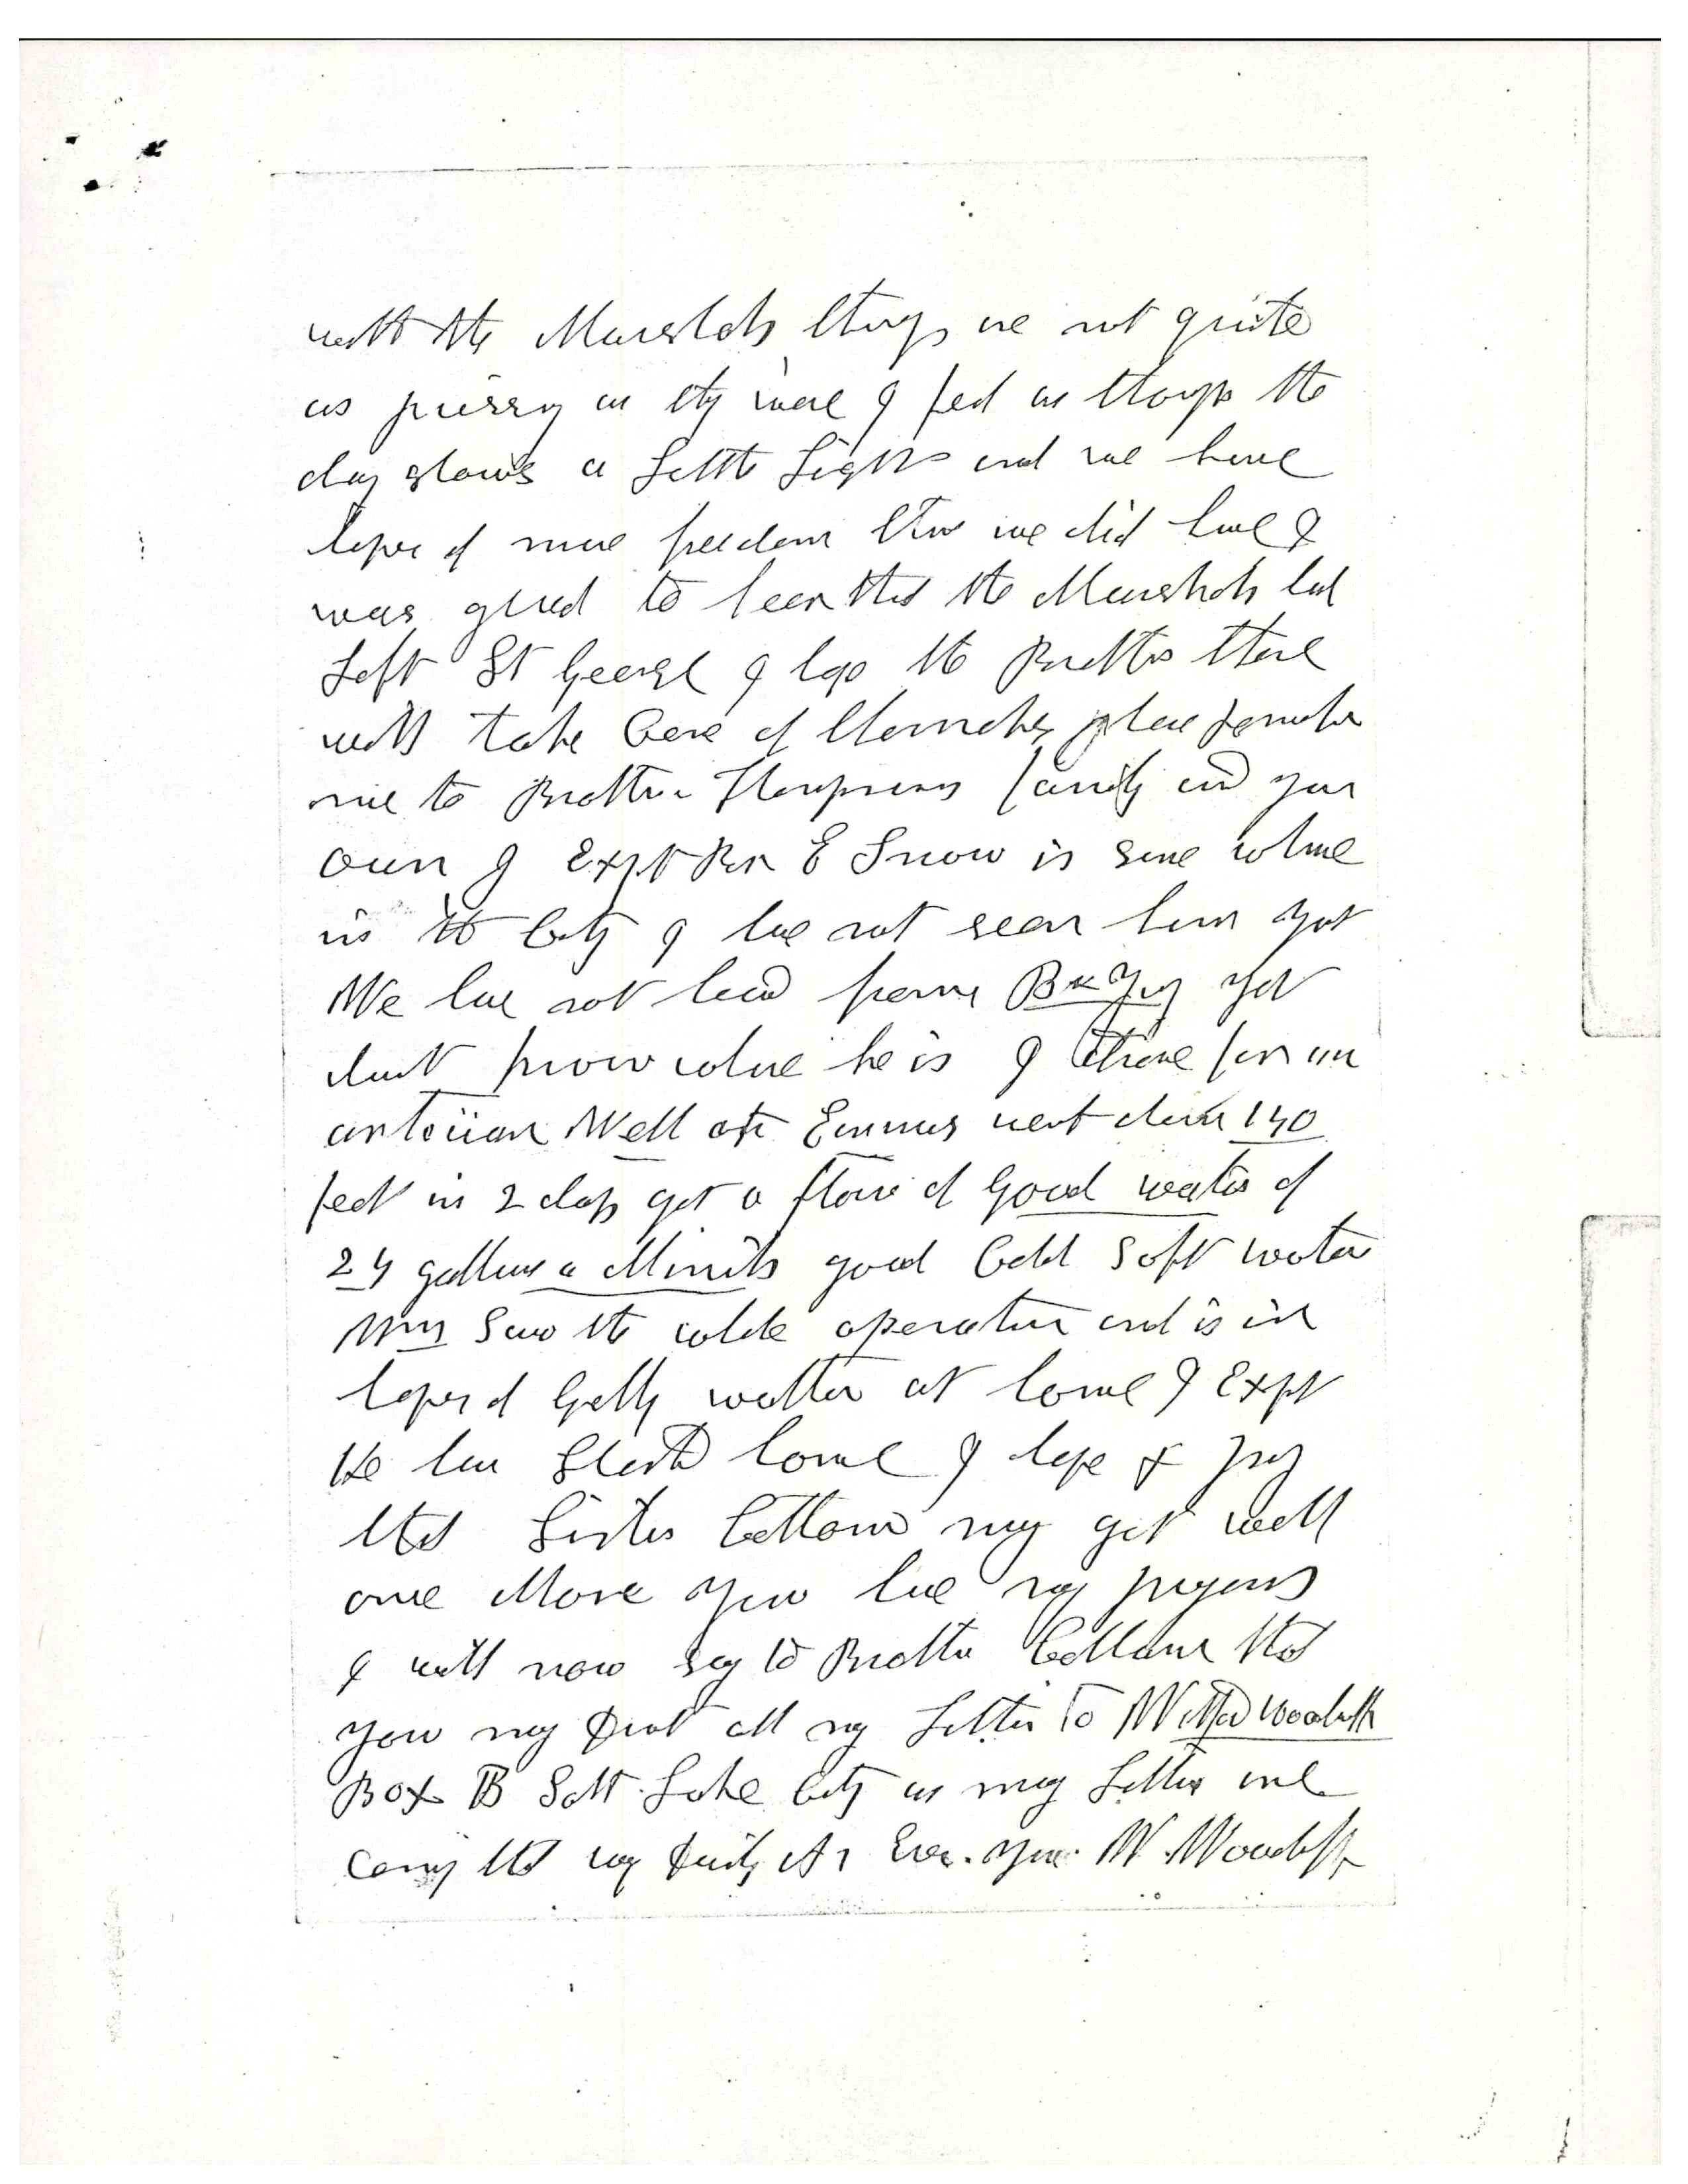 with the Marshals things are not quite
as pressing as they were I feel as though the
day shows a little light and we have
hopes of more freedom than we did have I
was glad to hear that the Marshals had
Left St George I hope the Brethren there
will take Care of themselves please remember
me to Brother Thompsons family and your
own I Expt Bro E Snow is some where
in the City I have not seen him yet
We have not heard from yet
dont know where he is I drove for an
artesian Well at Emmas went down 140
feet in 2 days got a flow of Good water of
24 gallons a Minute good Cold Soft water
saw the whole operation and is in
hopes of Getting watter at home I Expt
He has Started home I hope & pray
that Sister may get well
once More You have my prayers
I will now say to Brother that
you may all my Letters to Wilford Woodruff
Box B Salt Lake City as my Letters are
that way Ever Your W Woodruff